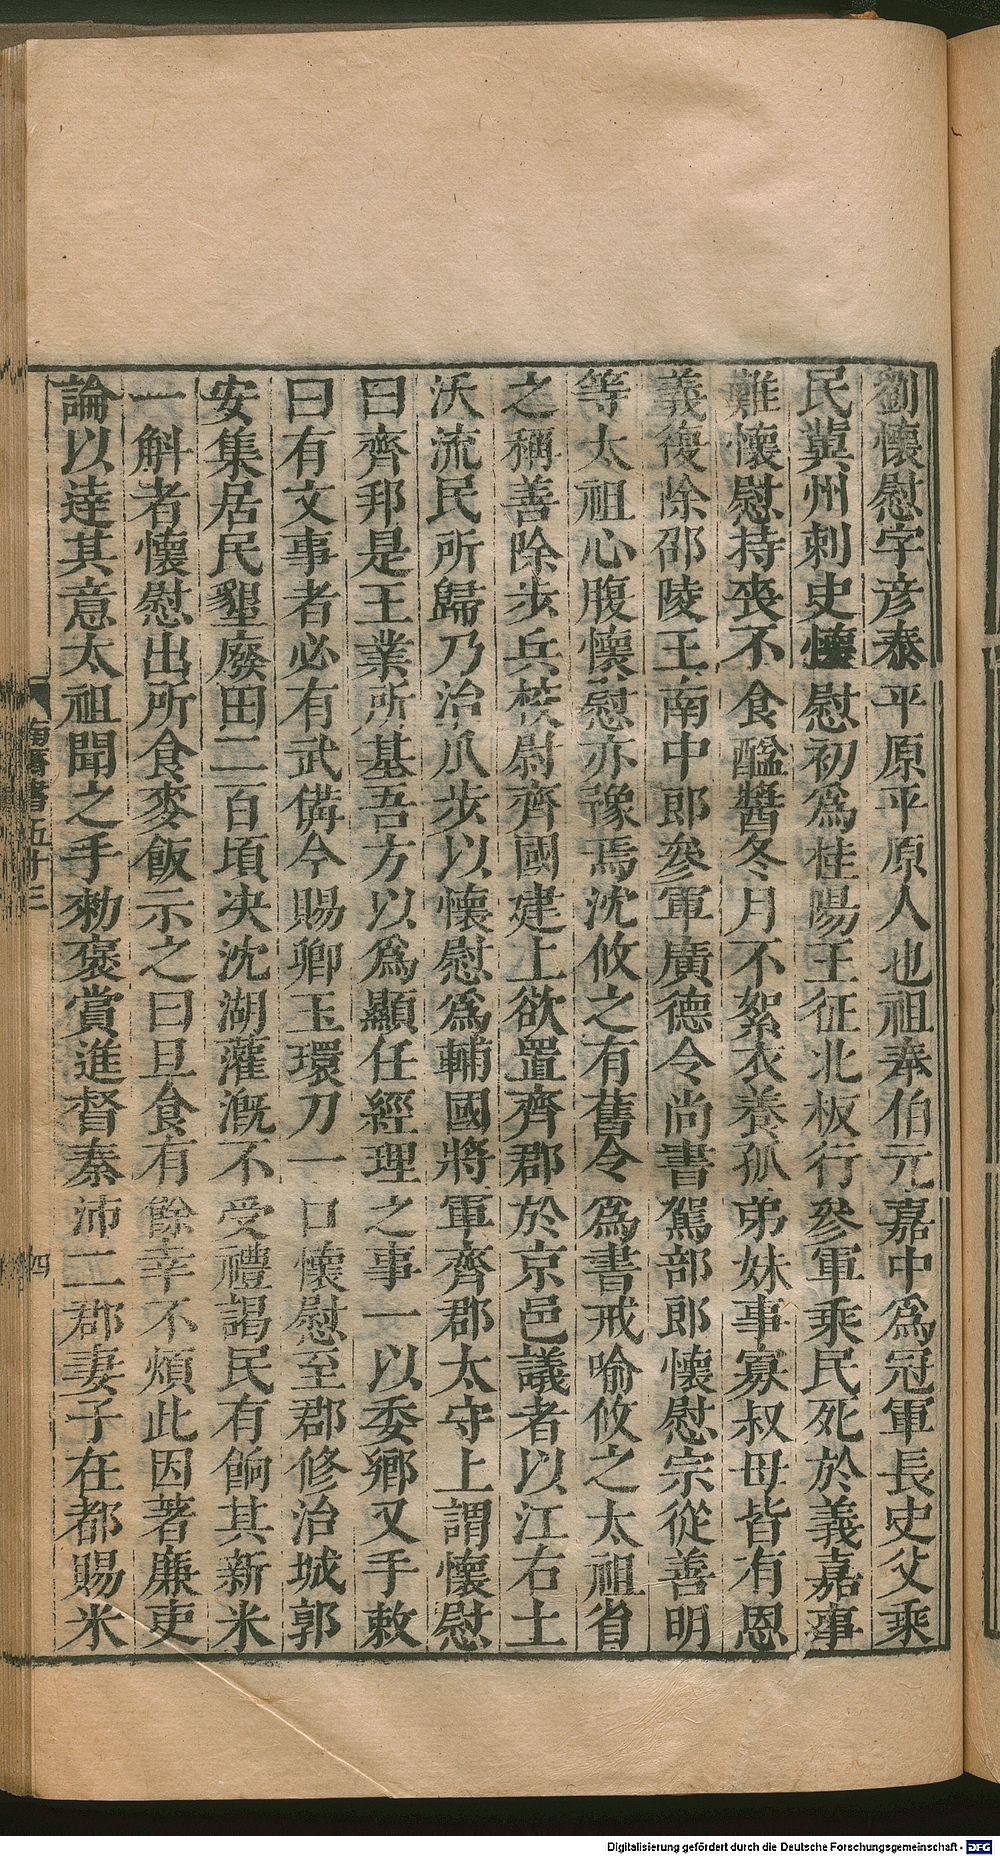 劉懷慰字彦泰平原平原人也祖奉伯元嘉中爲冠軍長史父乘
民冀州刺史懷慰初爲桂陽王征北板行參軍乘民死於義嘉事
難懷慰持喪不食醯醬冬月不絮衣養孤弟妹事寡叔母皆有恩
義復除邵陵王南中郎參軍廣德令尚書駕部郎懷慰宗從善明
等太祖心腹懷慰亦豫焉沈攸之有舊令爲書戒喻攸之太祖省
之稱善除步兵校尉齊國建上欲置齊郡於京邑議者以江右土
沃流民所歸乃治瓜步以懷慰爲輔國將軍齊郡太守上謂懷慰
曰齊邦是王業所基吾方以爲顯任經理之事一以委鄉又手敕
曰有文事者必有武備今賜卿玉環刀一口懷慰至郡修治城郭
安集居民墾廢田二百頃决沈湖灌漑不受禮謁民有餉其新米
一斛者懷慰出所食麥飯示之曰旦食有餘幸不煩此因著廉吏
論以逹其意太祖聞之手勑褒賞進督秦沛二郡妻子在都賜米
南齊書五十三
四
Digitalisierung gefördert durch die Deutsche Forschungsgemeinschaft - DFG